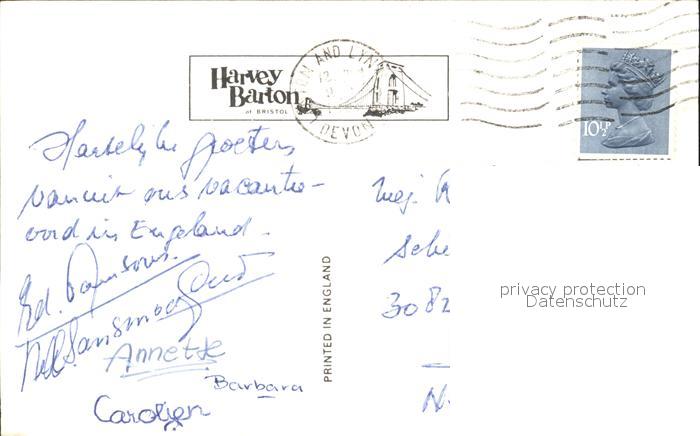 Harvey
Barton
of BRISTOL
AND LYN
12
DEVON
10½P
Hartelijke groeten
vanuit ons vacantie-
oord in Engeland.
Ed.
Annette
Barbara
Carolien
PRINTED IN ENGLAND
Mej.
Sche
3082
N.
privacy protection
Datenschutz